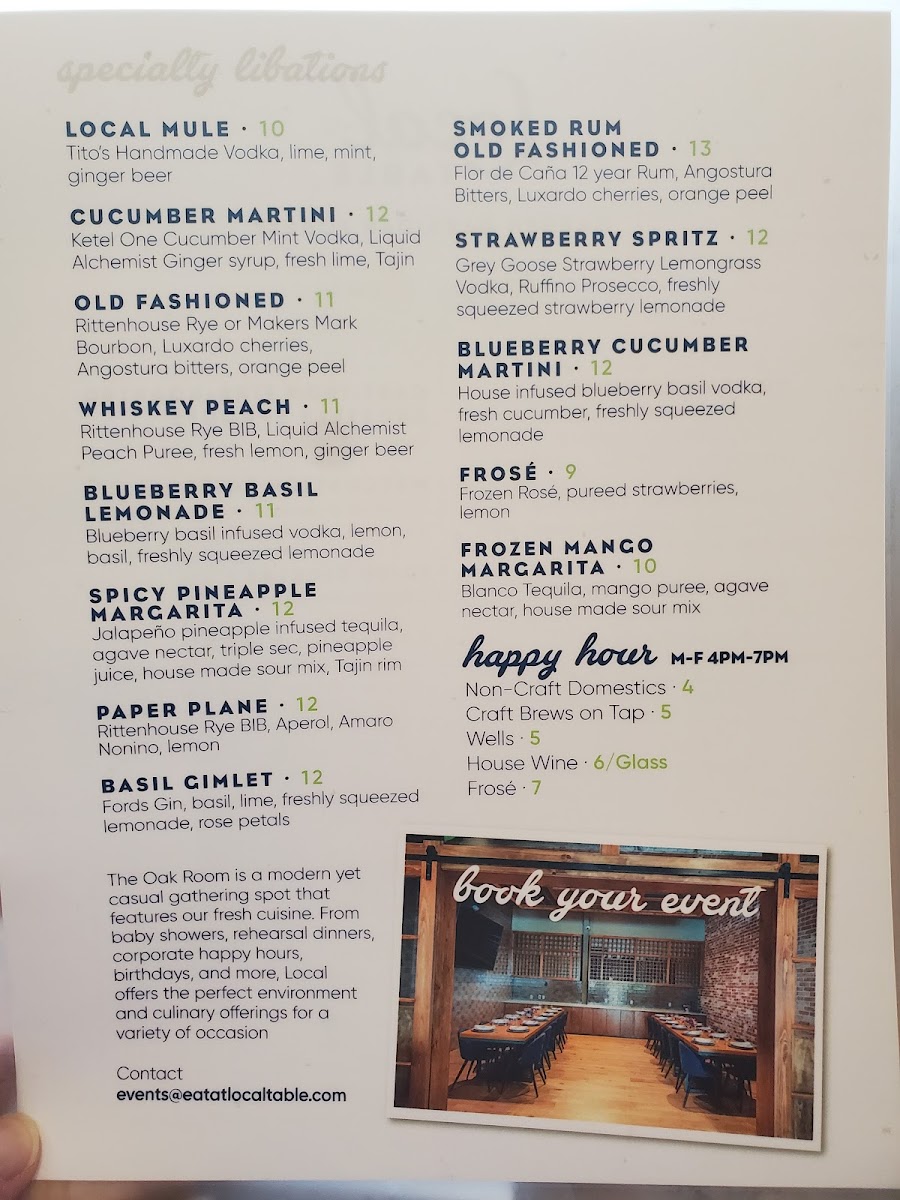 specialty libations
LOCAL MULE · 10
Tito's Handmade Vodka, lime, mint,
ginger beer
CUCUMBER MARTINI · 12
Ketel One Cucumber Mint Vodka, Liquid
Alchemist Ginger syrup, fresh lime, Tajin
OLD FASHIONED · 11
Rittenhouse Rye or Makers Mark
Bourbon, Luxardo cherries,
Angostura bitters, orange peel
WHISKEY PEACH · 11
Rittenhouse Rye BIB, Liquid Alchemist
Peach Puree, fresh lemon, ginger beer
BLUEBERRY BASIL
LEMONADE · 11
Blueberry basil infused vodka, lemon,
basil, freshly squeezed lemonade
SPICY PINEAPPLE
MARGARITA · 12
Jalapeño pineapple infused tequila,
agave nectar, triple sec, pineapple
juice, house made sour mix, Tajin rim
PAPER PLANE · 12
Rittenhouse Rye BIB, Aperol, Amaro
Nonino, lemon
BASIL GIMLET · 12
Fords Gin, basil, lime, freshly squeezed
lemonade, rose petals
SMOKED RUM
OLD FASHIONED · 13
Flor de Caña 12 year Rum, Angostura
Bitters, Luxardo cherries, orange peel
STRAWBERRY SPRITZ · 12
Grey Goose Strawberry Lemongrass
Vodka, Ruffino Prosecco, freshly
squeezed strawberry lemonade
BLUEBERRY CUCUMBER
MARTINI · 12
House infused blueberry basil vodka,
fresh cucumber, freshly squeezed
lemonade
FROSÉ · 9
Frozen Rosé, pureed strawberries,
lemon
FROZEN MANGO
MARGARITA · 10
Blanco Tequila, mango puree, agave
nectar, house made sour mix
happy hour M-F 4PM-7PM
Non-Craft Domestics · 4
Craft Brews on Tap · 5
Wells · 5
House Wine · 6/Glass
Frosé · 7
The Oak Room is a modern yet
casual gathering spot that
features our fresh cuisine. From
baby showers, rehearsal dinners,
corporate happy hours,
birthdays, and more, Local
offers the perfect environment
and culinary offerings for a
variety of occasion
Contact
events@eatatlocaltable.com
book your event